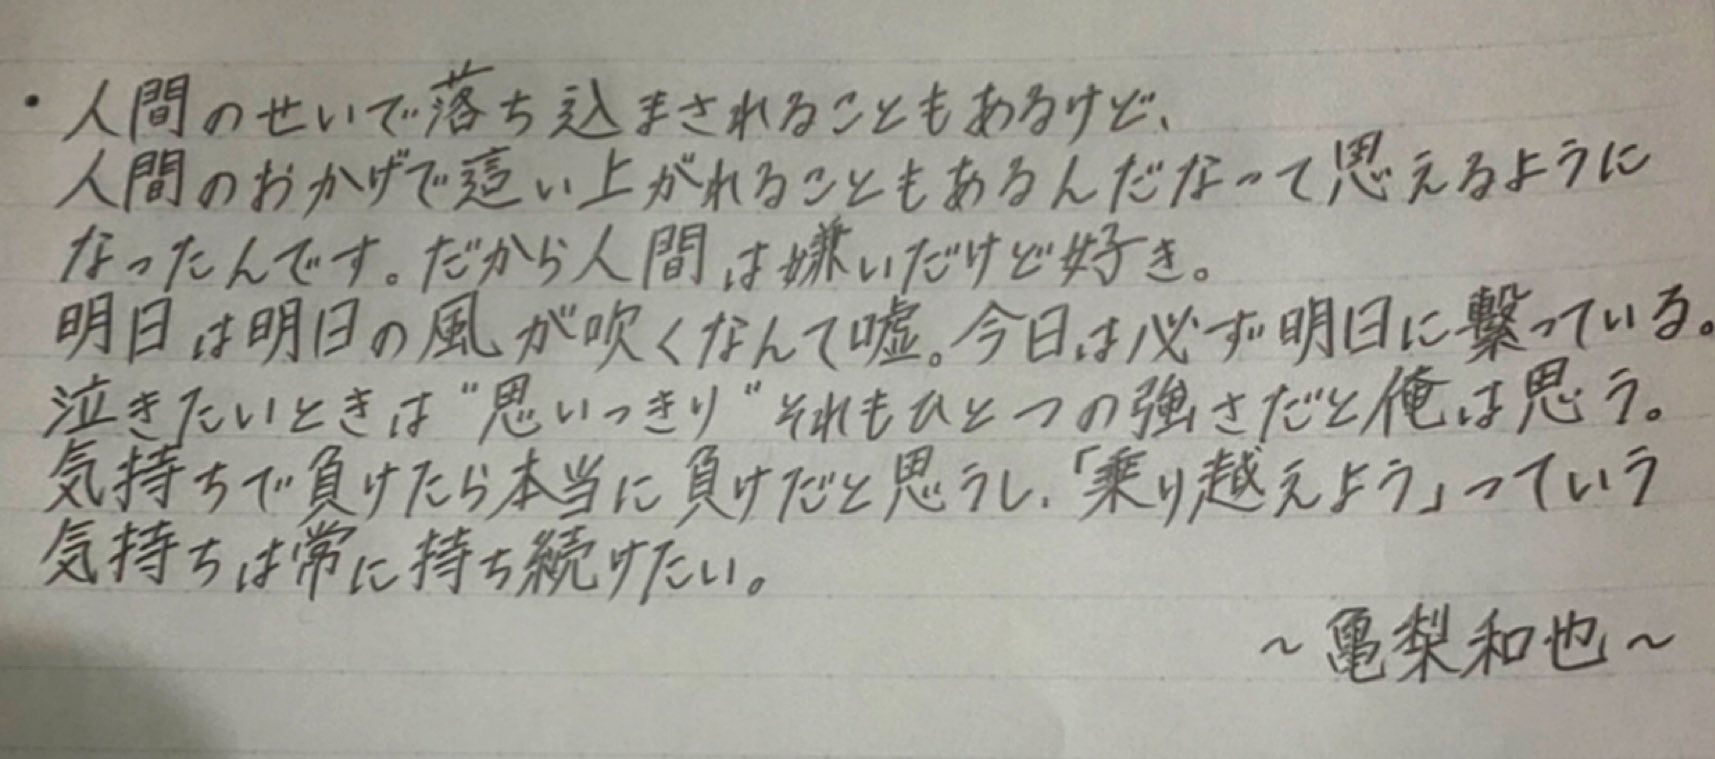 ・人間のせいで落ち込まされることもあるけど、
人間のおかげで這い上がれることもあるんだなって思えるように
なったんです。だから人間は嫌いだけど好き。
明日は明日の風が吹くなんて嘘。今日は必ず明日に繋っている。
泣きたいときは"思いっきり"それもひとつの強さだと俺は思う。
気持ちで負けたら本当に負けだと思うし、「乗り越えよう」っていう
気持ちは常に持ち続けたい。
～亀梨和也～